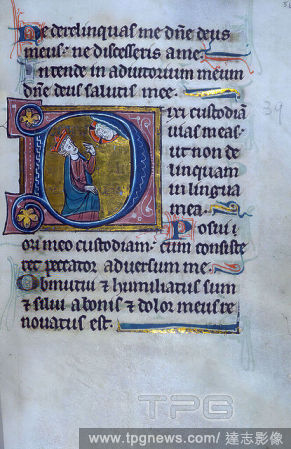 Ne derelinquas me dñe deus
meus· ne discesseris a me·
Intende in adiutorium meum
dñe deus salutis mee·
Dixi custodiā
uias meas·
ut non de
linquam
in lingua
mea·
Posui
ori meo custodiam· cum consiste
ret peccator aduersum me·
Obmutui & humiliatus sum
& silui a bonis & dolor meus re
nouatus est·
39
TPG
www.tpgnews.com/ 達志影像